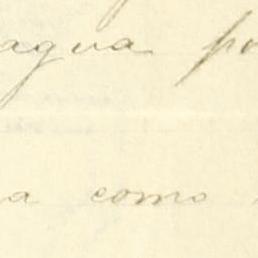 agua
a como